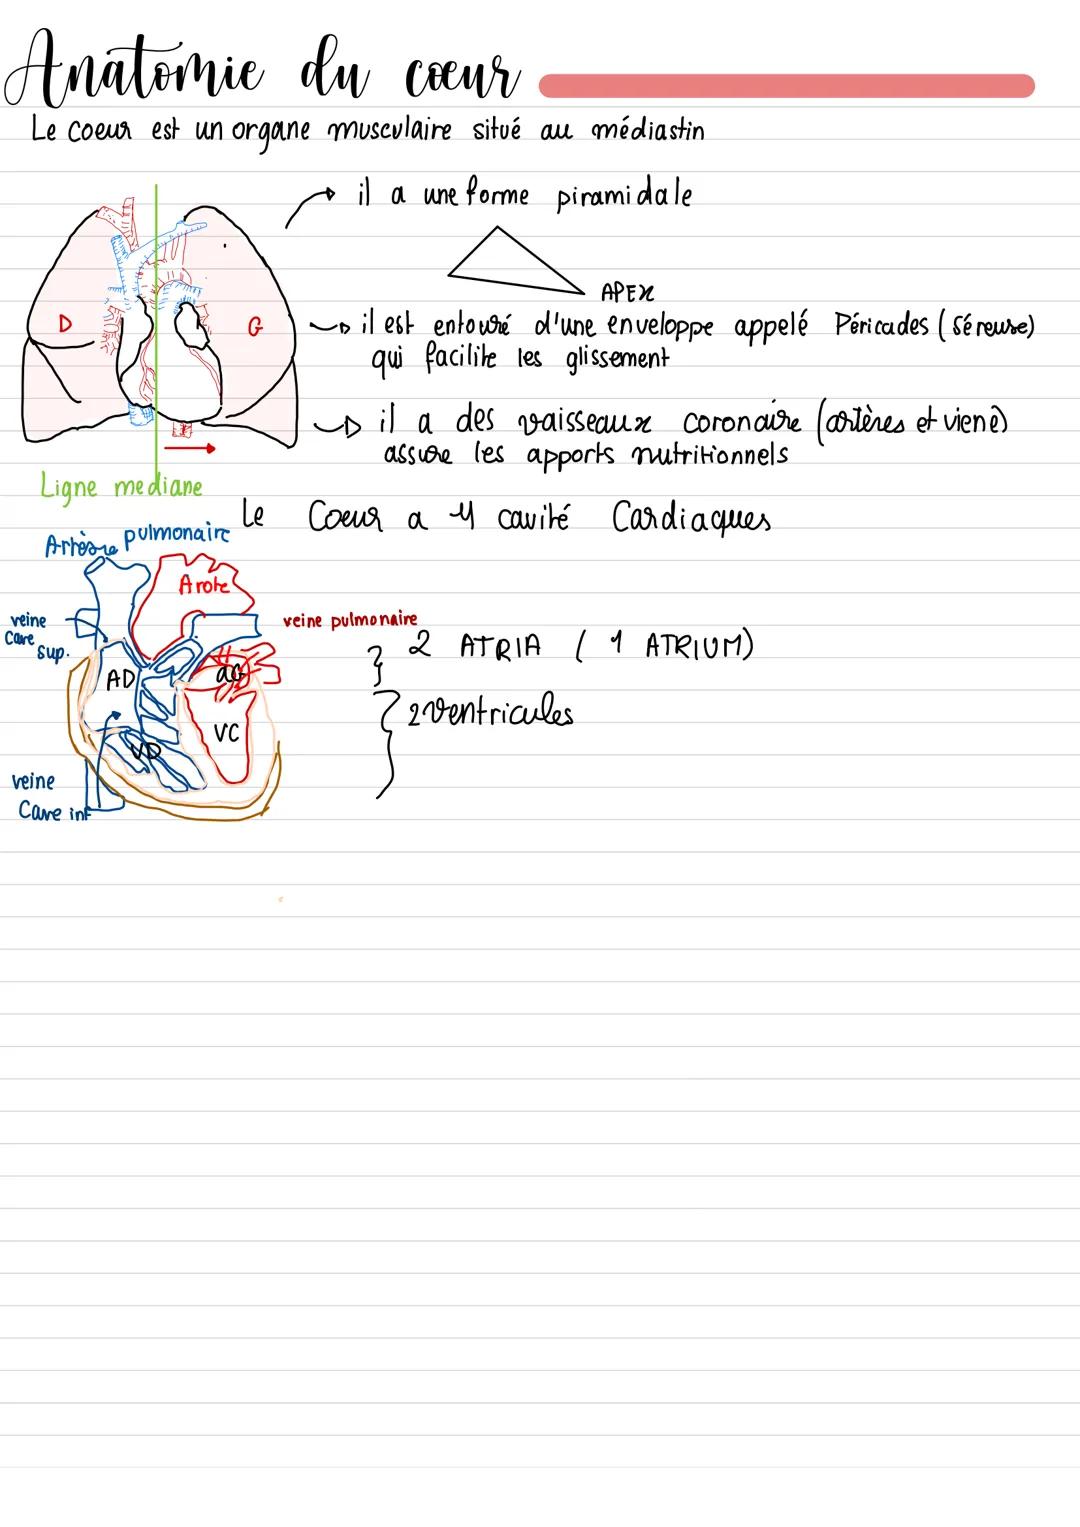 Anatomie du cœur
Le coeur est un organe musculaire situé au médiastin
il a une forme piramidale
APEX
D
G
il est entouré d'une enveloppe appelé Péricades (séreuse)
qui facilite les glissement
il a des vaisseaux coronaire (artères et viene)
assure les apports nutritionnels
Ligne mediane
Le Coeur a 4 cavité Cardiaques
Artèsre pulmonaire
Arote
veine
Cave
sup.
veine pulmonaire
2 ATRIA ( 1 ATRIUM)
AD
aG
2 ventricules
VC
VD
veine
Cave inf